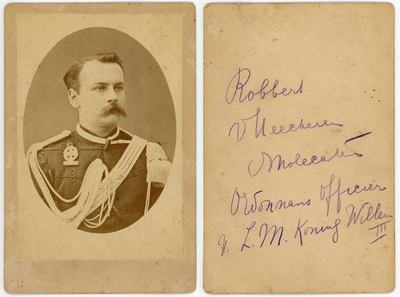 Robbert
v Heeckeren
Molecaten
Ordonnans Officier
v. Z. M. Koning Willem
III